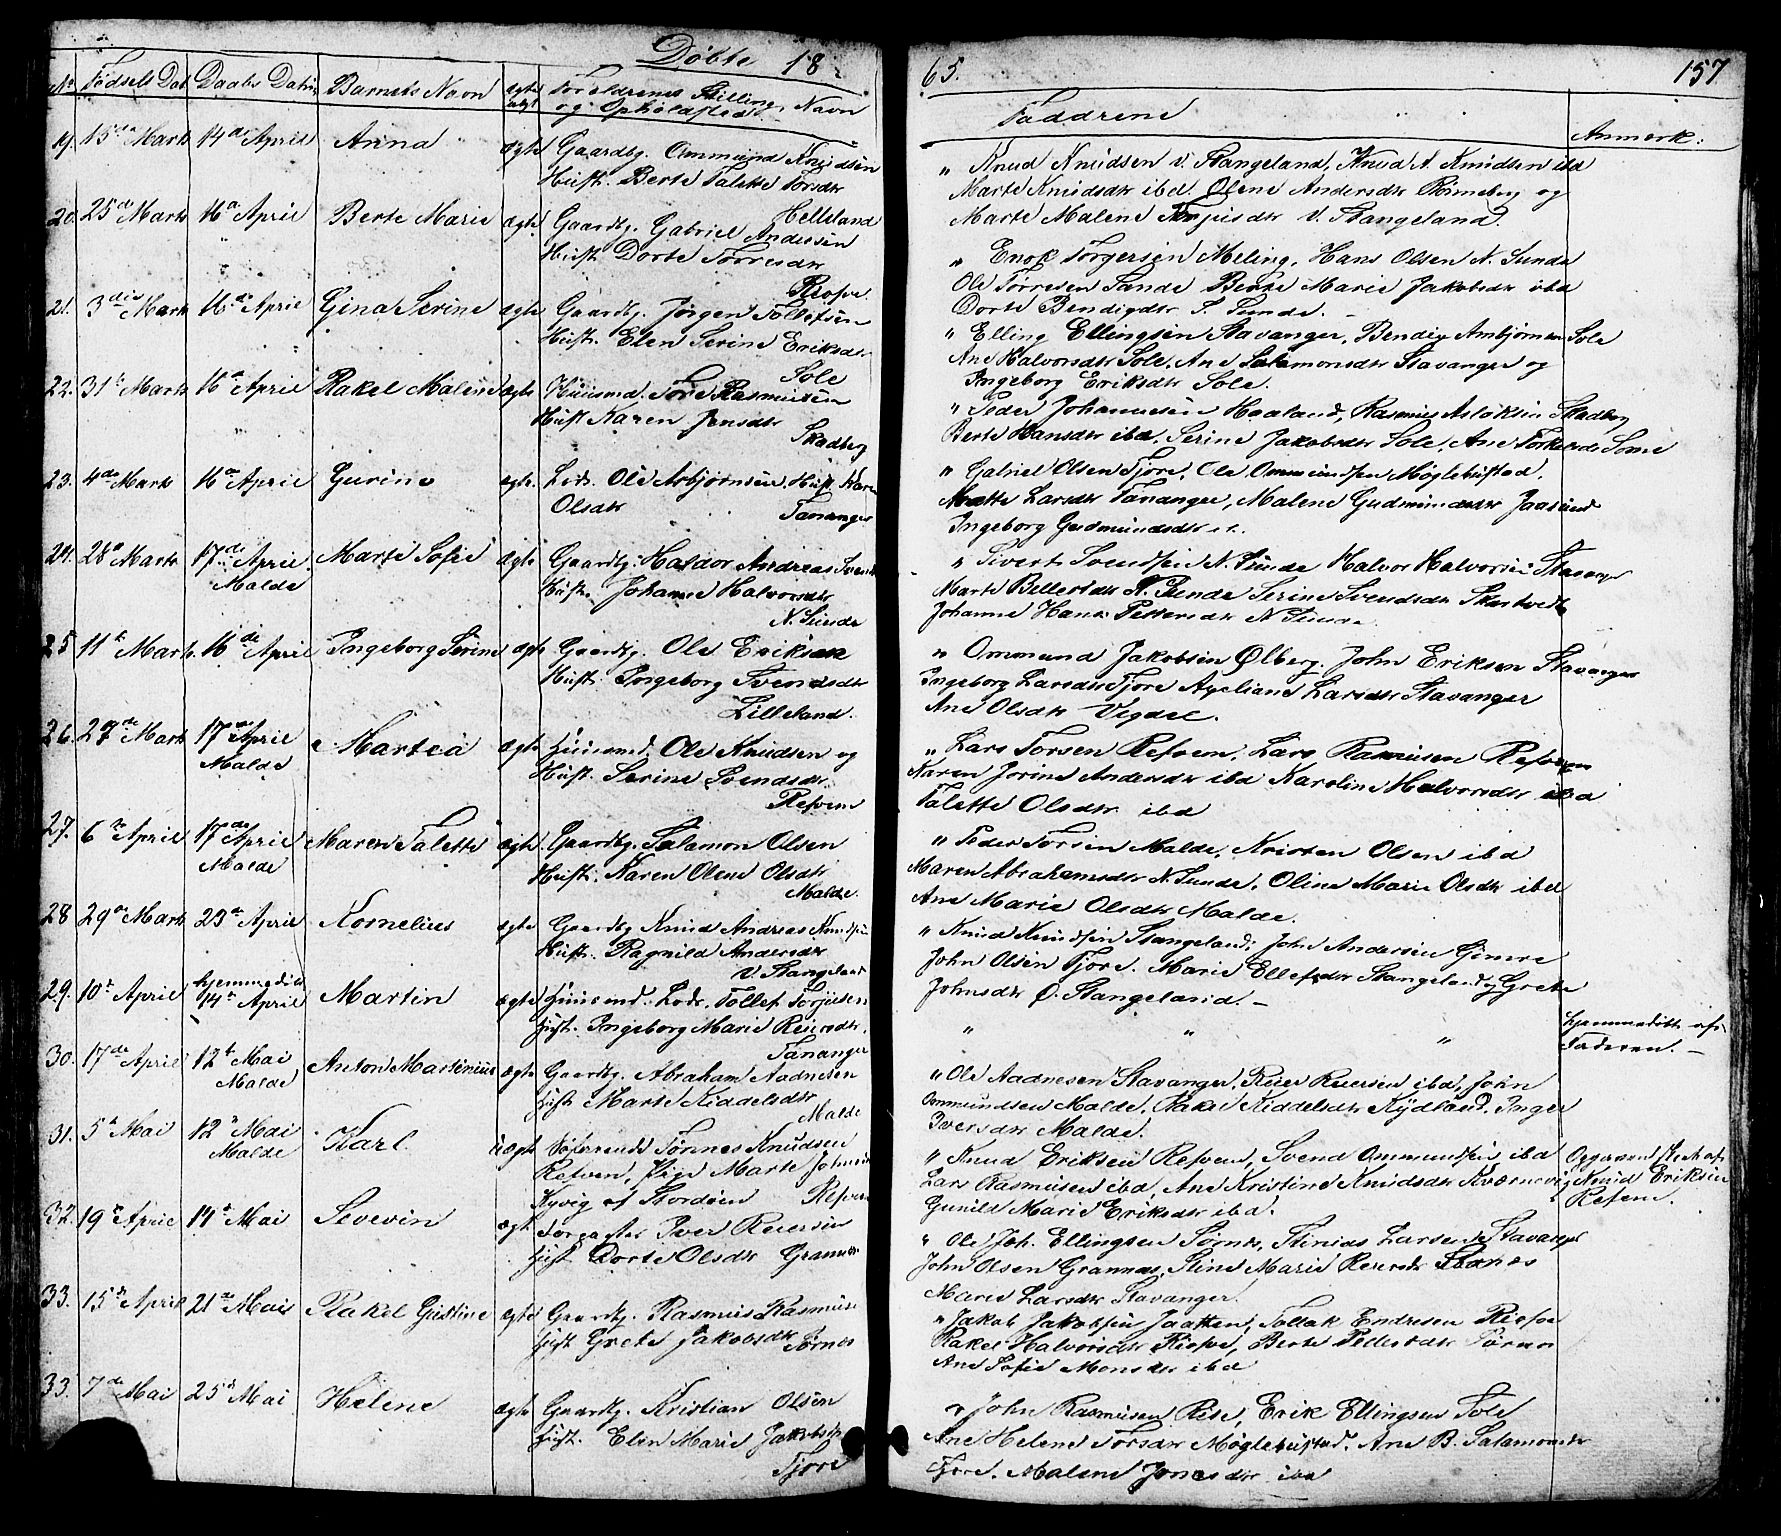 Døbte 18
65. 157
No Fødsels Dat Daabs Datum Barnets Navn ægte uægt Forældrenes Stilling og Opholdsted Navn
Faddrene Anmerk:
19. 15de Marts 14de April Anna ægte Gaardbg. Ommund Knudsen
Hust. Berte Talette Torsdtr
Helleland
" Knud Knudsen v. Stangeland, Knud A. Knudsen ibd
Marte Knudsdtr ibd, Olene Andersdtr Rønneberg og
Marte Malene Torjusdtr V. Stangeland.
20. 25de Marts 16de April Berte Marie ægte Gaardbg. Gabriel Andersen
Hust. Dorte Torresdtr
Risøe.
" Enok Torgersen Meling, Hans Olsen N. Sunde
Ole Torresen Sande Berte Marie Jakobsdtr ibd
Dorte Bendigdtr S. Sunde.
21. 3die Marts 16de April Gina Serine ægte Gaardbg. Jørgen Tollefsen
Hust. Elen Serine Eriksdtr
Sole
" Elling Ellingsen Stavanger, Bendig Ambjørnsen Sole
Ane Halvorsdtr Sole, Ane Salamonsdtr Stavanger og
Ingeborg Eriksdtr Sole.
22. 31te Marts 16de April Rakel Malene ægte Huusmd. Tore Rasmusen
Hust Karen Jensdtr
Skadberg
" Peder Johannesen Haaland, Rasmus Aslaksen Skadberg
Berte Hansdtr ibd, Serine Jakobsdtr Sole, Ane Torkelsdtr Sømme
23. 4de Marts 16de April Gurine ægte. Lods. Ole Asbjørnsen, Hust Karen
Olsdtr Tananger
" Gabriel Olsen Tjore, Ole Ommundsen Møglebustad,
Mette Larsdtr Tananger, Malene Gudmundsdtr Jaasund
Ingeborg Gudmundsdtr
24. 28de Marts 17de April Marte Sofie ægte Gaardbg. Haldor Andreas Svends
Malde Hust. Johanne Halvorsdtr
N. Sunde
" Sivert Svendsen N. Sunde Halvor Halvorsen Stavanger
Marte N. Sunde Serine Svendsdtr Skartvedt
Johanne Hans Pettersdtr N Sunde.
25 11te Marts. 16de April Ingeborg Serine ægte Gaardbg. Ole Eriksen
Hust. Ingeborg Svendsdtr
Lilleland.
" Ommund Jakobsen Ølberg, John Eriksen Stavanger
Ingeborg Larsdtr Tjore Larsdtr Stavanger
Ane Olsdtr Vigdel.
26. 27de Marts 17de April Martea ægte Huusmd. Ole Knudsen og
Malde Hust. Serine Svendsdtr
Refvem
" Lars Torsen Refvem, Lars Rasmusen Refvem
Karen Jorine Andersdtr ibd Karoline Halvorsdtr ibd
Talette Olsdtr ibd
27. 6te April 17de April Maren Talette ægte. Gaardbg. Salamon Olsen
Malde Hust. Karen Olene Olsdtr
Malde.
" Peder Torsen Malde, Kristen Olsen ibd
Maren Abrahamsdtr N. Sunde, Oline Marie Olsdtr ibd
Ane Marie Olsdtr Malde.
28 29de Marts 23de April Kornelius ægte Gaardbg Knud Andreas Knudsen
Hust. Ragnild Andersdtr
V Stangeland
" Knud Knudsen Stangeland, John Andersen Gimre
John Olsen Tjore. Marie Ellefsdtr Stangeland, Grete
Johnsdtr Ø. Stangeland.
29. 10de April hjemmedøbt 14de April Martin ægte Huusmd. Lods. Tollef Torjusen
Hust. Ingeborg Marie Reiersdtr.
Tananger
" " "
hjemmedøbt af
Faderen.
30. 17de April 12te Mai Anton Martinius ægte Gaardbg. Abraham Aadnesen
Malde Hust Marte Kiddelsdtr
Malde
" Ole Aadnesen Stavanger, Reier Reiersen ibd, John
Ommundsen Malde, Rakel Kiddelsdtr Kydland, Inger
Iversdtr Malde.
31. 5te Mai 12te Mai Karl. uægte Søfarende Tønnes Knudsen
Malde Refvem, Pige Marte Johns
Kyvig af Stordøen Refvem
" Knud Eriksen Refvem, Svend Ommundsen ibd
Lars Rasmusen ibd, Ane Kristine Knudsdtr Kværnevig
Gunild Marie Eriksdtr ibd.
Opgivend Skeet af
Knud Eriksen
Refvem.
32. 19de April 14de Mai Severin ægt. Iver Reiersen
Hust Dorte Olsdtr Grannæs
" Ole Joh. Ellingsen Sørnes, Stinius Larsen Stavanger
John Olsen Grannæs, Stine Marie Reiersdtr
Marie Larsdtr Stavanger.
33. 15de April 21de Mai Rakel Gustine ægte Gaardbg. Rasmus Rasmusen
Hust Grete Jakobsdtr
Sørnes
" Jakob Jakobsen Jaatten, Tollak Endresen Risøe
Rakel Halvorsdtr Risøe, Berte Pedersdtr Sørnes
Ane Sofie Monsdtr ibd
33. 7de Mai 25de Mai Helene ægte Gaardbg. Kristian Olsen
Hust. Elen Marie Jakobsdtr
Tjore
" John Rasmusen Rise, Erik Ellingsen Sole
Ane Helene Torsdtr Møglebustad, Ane B. Salamonsdtr
Tjore, Malene Jonasdtr ibd